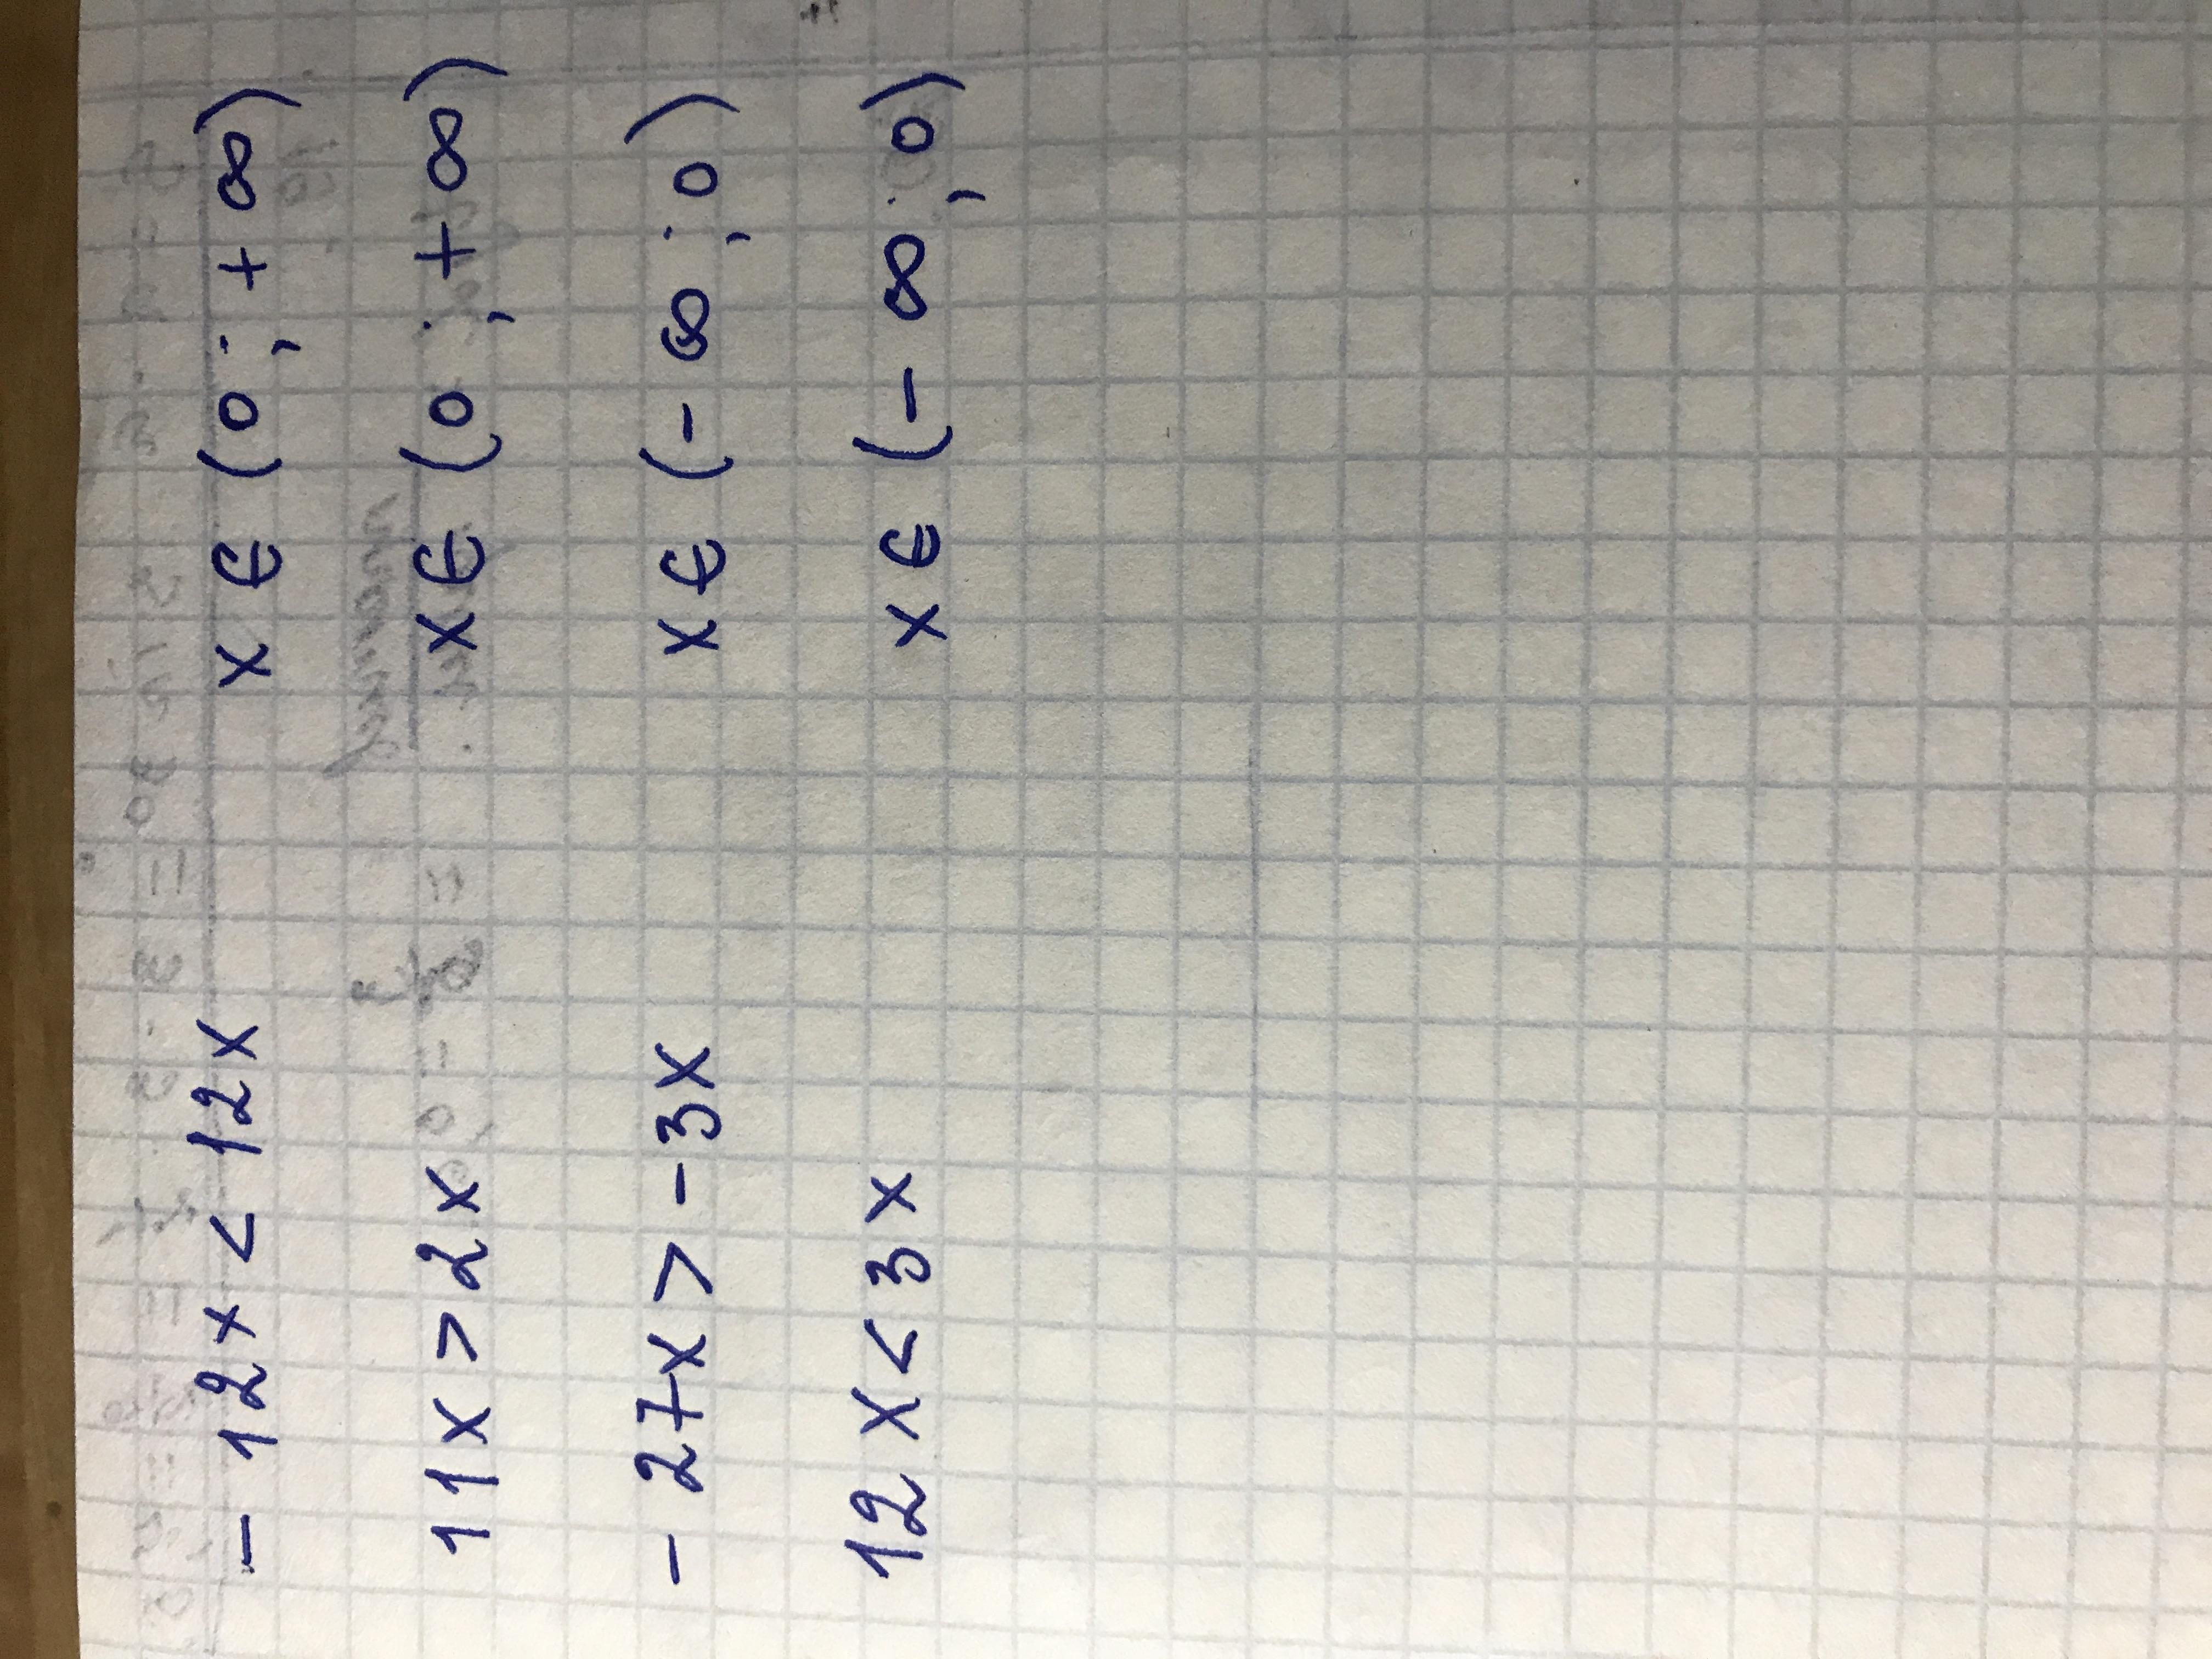 - 12x < 12x x ∈ (0 ; + ∞)
11x > 2x x ∈ (0 ; + ∞)
- 27x > - 3x x ∈ (- ∞ ; 0)
12x < 3x x ∈ (- ∞ ; 0)